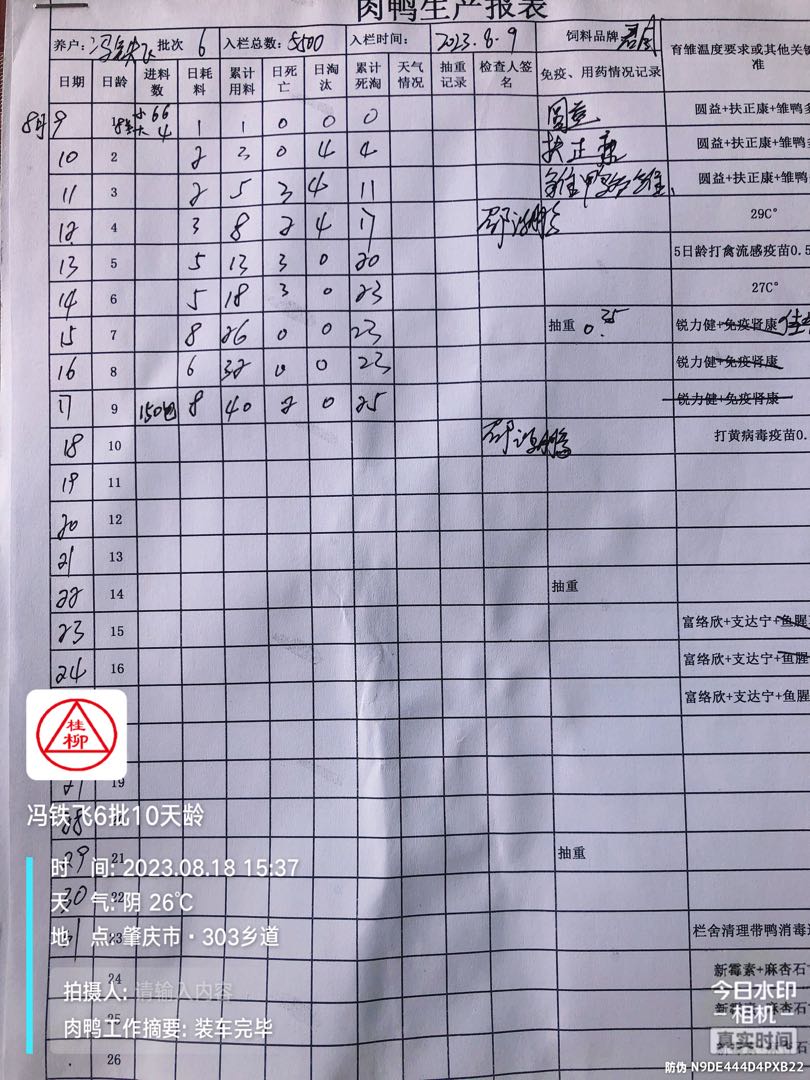 肉鸭生产报表
养户: 冯铁飞 批次 6 入栏总数: 5500 入栏时间: 2023.8.9 饲料品牌
育雏温度要求或其他关键
准
日期 日龄 进料数 日耗料 累计用料 日死亡 日淘汰 累计死淘 天气情况 抽重记录 检查人签名 免疫、用药情况记录
8月9 小66 大4 1 1 0 0 0 圆益 圆益+扶正康+雏鸭多
10 2 2 3 0 4 4 扶正康 圆益+扶正康+雏鸭多
11 3 2 5 3 4 11 圆益+扶正康+雏鸭多
12 4 3 8 2 4 17 29C°
13 5 5 13 3 0 20 5日龄打禽流感疫苗0.5
14 6 5 18 3 0 23 27C°
15 7 8 26 0 0 23 抽重 0.35 锐力健+免疫肾康
16 8 6 32 0 0 23 锐力健+免疫肾康
17 9 150包 8 40 2 0 25 锐力健+免疫肾康
18 10 打黄病毒疫苗0.
19 11
20 12
21 13
22 14 抽重
23 15 富络欣+支达宁+鱼腥
24 16 富络欣+支达宁+鱼腥
富络欣+支达宁+鱼腥
桂柳
19
冯铁飞6批10天龄
28
29 21 抽重
时 间: 2023.08.18 15:37
30 22
天 气: 阴 26℃
23 栏舍清理带鸭消毒
地 点: 肇庆市·303乡道
24 新霉素+麻杏石
拍摄人: 请输入内容
今日水印
相机
25
肉鸭工作摘要: 装车完毕
真实时间
26
防伪 N9DE444D4PXB22